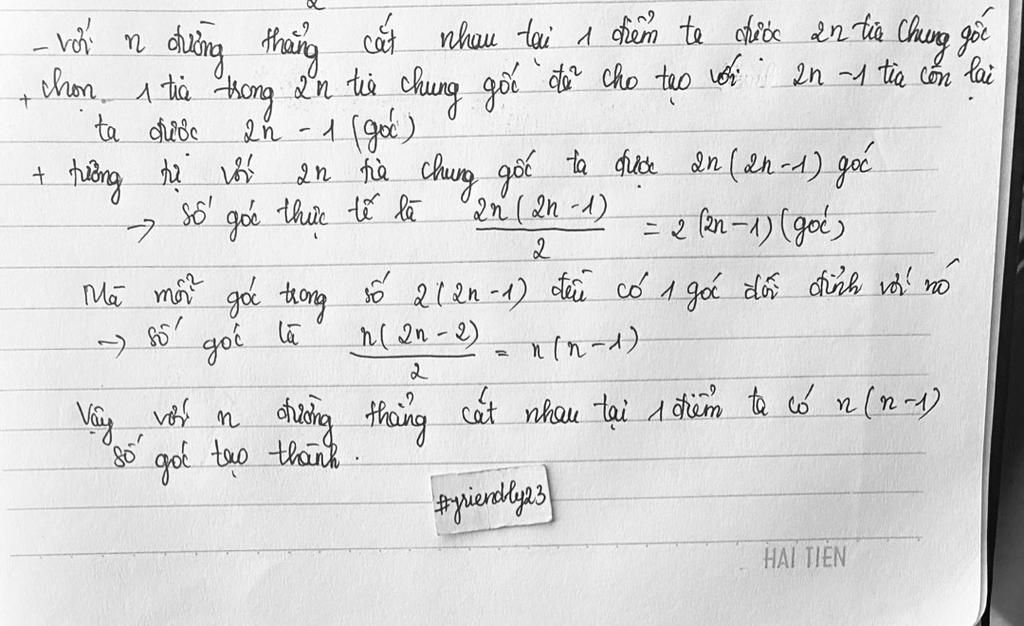 - với n đường thẳng cắt nhau tại 1 điểm ta được 2n tia chung gốc
+ chọn 1 tia trong 2n tia chung gốc đã cho tạo với 2n - 1 tia còn lại
ta được 2n - 1 (góc)
+ tương tự với 2n tia chung gốc ta được 2n(2n-1) góc
→ số góc thực tế là 2n(2n-1)/2 = 2(2n-1)(góc)
Mà mỗi góc trong số 2(2n-1) đều có 1 góc đối đỉnh với nó
→ số góc là n(2n-2)/2 = n(n-1)
Vậy với n đường thẳng cắt nhau tại 1 điểm ta có n(n-1)
số góc tạo thành.
#friendly23
HẢI TIẾN